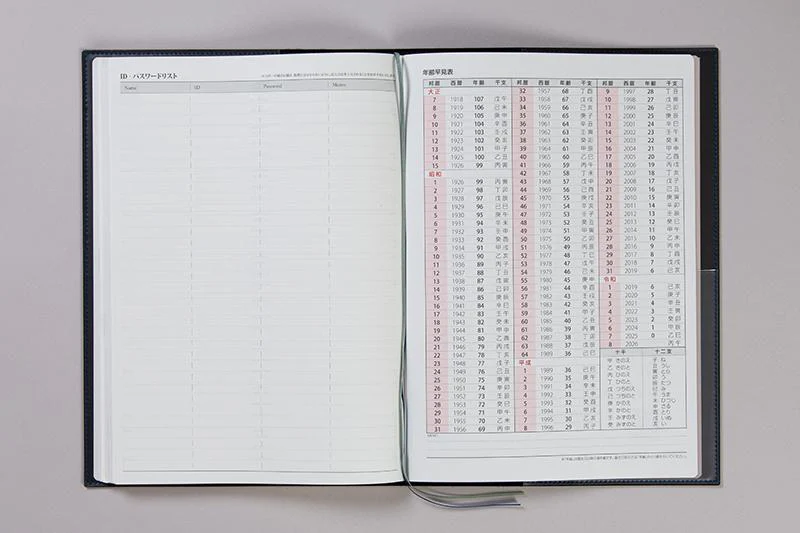 ID・パスワードリスト
Name ID Password Memo
年齢早見表
邦暦 西暦 年齢 干支
大正
7 1918 107 戊午
8 1919 106 己未
9 1920 105 庚申
10 1921 104 辛酉
11 1922 103 壬戌
12 1923 102 癸亥
13 1924 101 甲子
14 1925 100 乙丑
15 1926 99 丙寅
昭和
1 1926 99 丙寅
2 1927 98 丁卯
3 1928 97 戊辰
4 1929 96 己巳
5 1930 95 庚午
6 1931 94 辛未
7 1932 93 壬申
8 1933 92 癸酉
9 1934 91 甲戌
10 1935 90 乙亥
11 1936 89 丙子
12 1937 88 丁丑
13 1938 87 戊寅
14 1939 86 己卯
15 1940 85 庚辰
16 1941 84 辛巳
17 1942 83 壬午
18 1943 82 癸未
19 1944 81 甲申
20 1945 80 乙酉
21 1946 79 丙戌
22 1947 78 丁亥
23 1948 77 戊子
24 1949 76 己丑
25 1950 75 庚寅
26 1951 74 辛卯
27 1952 73 壬辰
28 1953 72 癸巳
29 1954 71 甲午
30 1955 70 乙未
31 1956 69 丙申
邦暦 西暦 年齢 干支
32 1957 68 丁酉
33 1958 67 戊戌
34 1959 66 己亥
35 1960 65 庚子
36 1961 64 辛丑
37 1962 63 壬寅
38 1963 62 癸卯
39 1964 61 甲辰
40 1965 60 乙巳
41 1966 59 丙午
42 1967 58 丁未
43 1968 57 戊申
44 1969 56 己酉
45 1970 55 庚戌
46 1971 54 辛亥
47 1972 53 壬子
48 1973 52 癸丑
49 1974 51 甲寅
50 1975 50 乙卯
51 1976 49 丙辰
52 1977 48 丁巳
53 1978 47 戊午
54 1979 46 己未
55 1980 45 庚申
56 1981 44 辛酉
57 1982 43 壬戌
58 1983 42 癸亥
59 1984 41 甲子
60 1985 40 乙丑
61 1986 39 丙寅
62 1987 38 丁卯
63 1988 37 戊辰
64 1989 36 己巳
平成
1 1989 36 己巳
2 1990 35 庚午
3 1991 34 辛未
4 1992 33 壬申
5 1993 32 癸酉
6 1994 31 甲戌
7 1995 30 乙亥
8 1996 29 丙子
邦暦 西暦 年齢 干支
9 1997 28 丁丑
10 1998 27 戊寅
11 1999 26 己卯
12 2000 25 庚辰
13 2001 24 辛巳
14 2002 23 壬午
15 2003 22 癸未
16 2004 21 甲申
17 2005 20 乙酉
18 2006 19 丙戌
19 2007 18 丁亥
20 2008 17 戊子
21 2009 16 己丑
22 2010 15 庚寅
23 2011 14 辛卯
24 2012 13 壬辰
25 2013 12 癸巳
26 2014 11 甲午
27 2015 10 乙未
28 2016 9 丙申
29 2017 8 丁酉
30 2018 7 戊戌
31 2019 6 己亥
令和
1 2019 6 己亥
2 2020 5 庚子
3 2021 4 辛丑
4 2022 3 壬寅
5 2023 2 癸卯
6 2024 1 甲辰
7 2025 0 乙巳
8 2026 丙午
十干 十二支
甲 きのえ
乙 きのと
丙 ひのえ
丁 ひのと
戊 つちのえ
己 つちのと
庚 かのえ
辛 かのと
壬 みずのえ
癸 みずのと
子 ね
丑 うし
寅 とら
卯 う
辰 たつ
巳 み
午 うま
未 ひつじ
申 さる
酉 とり
戌 いぬ
亥 い
MEMO